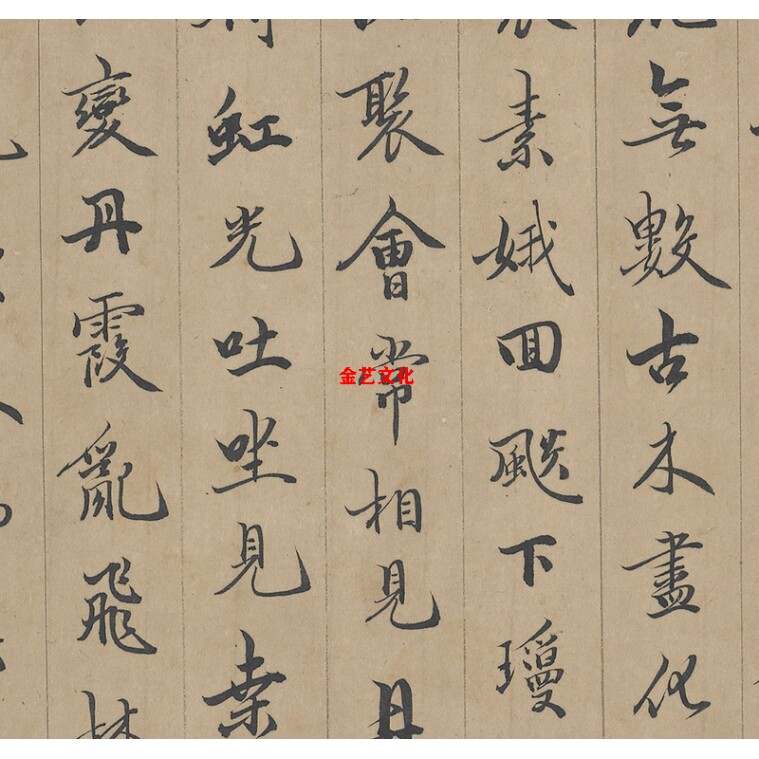 無數古木盡化
素娥回飈下瓊
聚會常相見月
虹光吐坐見桒
變丹霞亂飛林
金艺文化